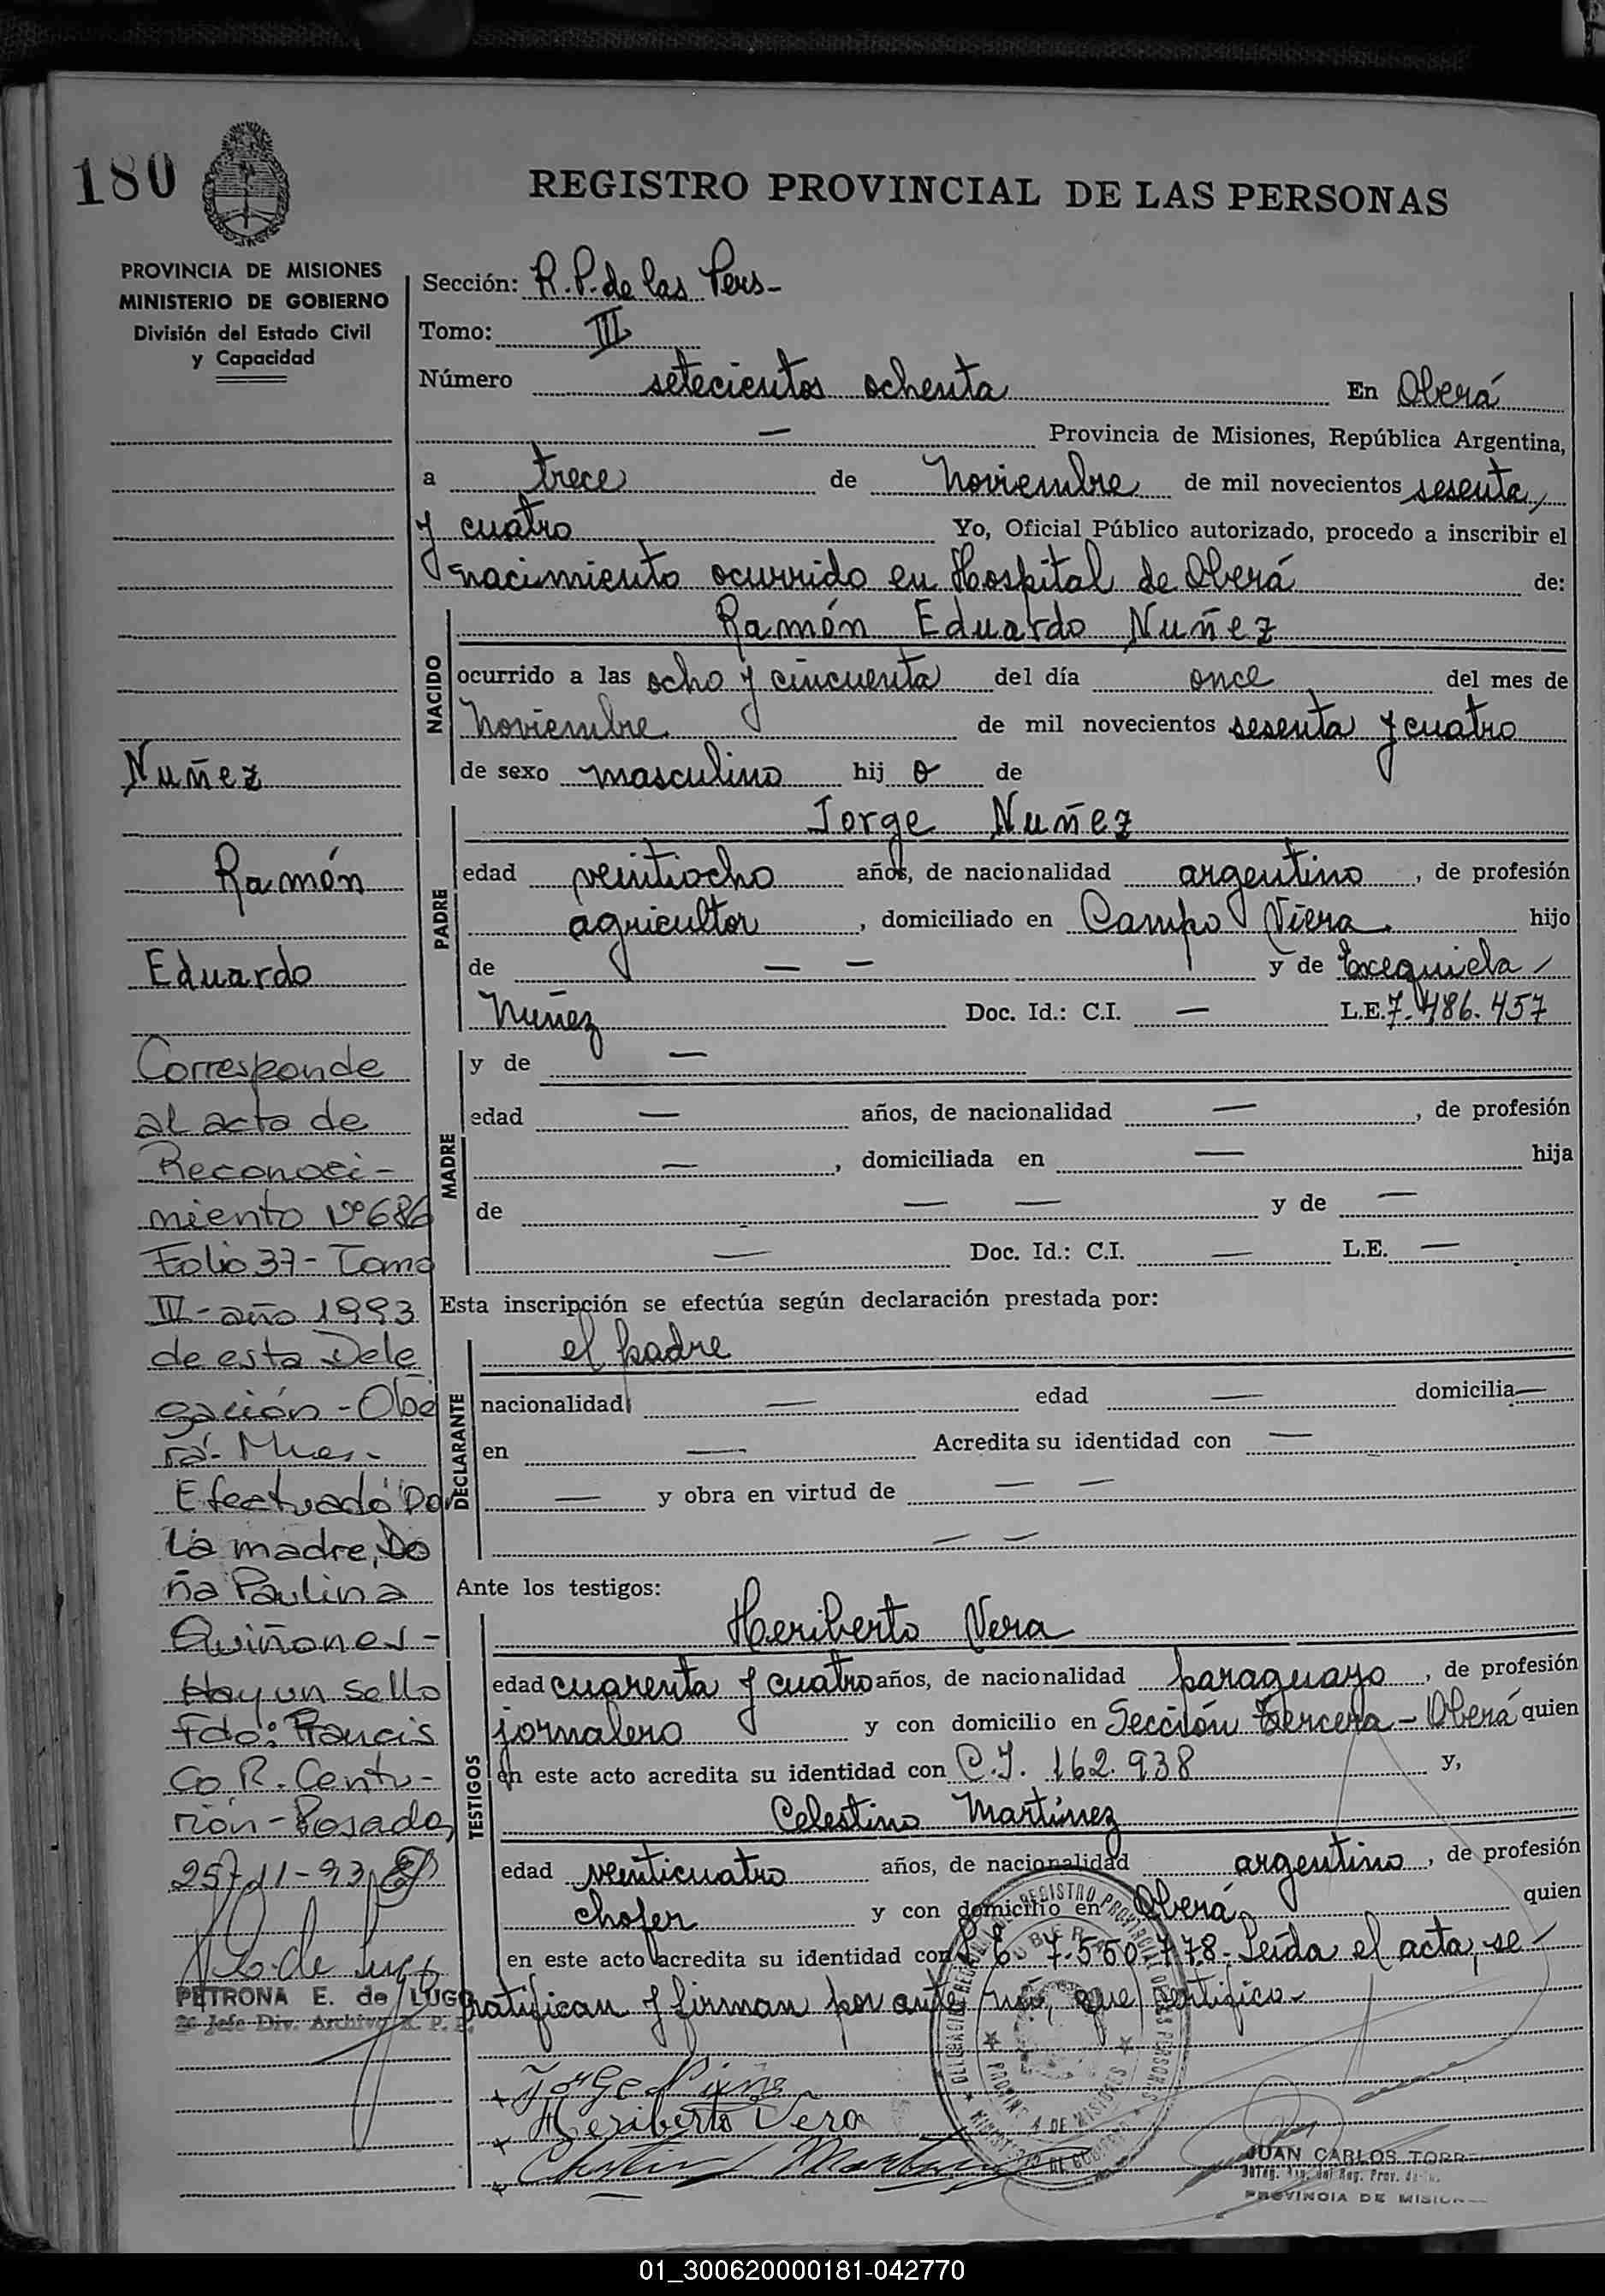 180
REGISTRO PROVINCIAL DE LAS PERSONAS
PROVINCIA DE MISIONES
MINISTERIO DE GOBIERNO
División del Estado Civil
y Capacidad
Sección: R.P. de las Pers-
Tomo: III
Número setecientos ochenta En Oberá
— Provincia de Misiones, República Argentina,
a trece de Noviembre de mil novecientos sesenta
y cuatro Yo, Oficial Público autorizado, procedo a inscribir el
nacimiento ocurrido en Hospital de Oberá de:
NACIDO
Ramón Eduardo Nuñez
ocurrido a las ocho y cincuenta del día once del mes de
Noviembre de mil novecientos sesenta y cuatro
de sexo masculino hij o de
PADRE
Jorge Nuñez
edad veintiocho años, de nacionalidad argentino, de profesión
agricultor, domiciliado en Campo Viera. hijo
de — — y de Exequiela
Nuñez Doc. Id.: C.I. — L.E. 7.486.457
MADRE
y de —
edad — años, de nacionalidad —, de profesión
—, domiciliada en — hija
de — — y de —
— Doc. Id.: C.I. — L.E. —
Esta inscripción se efectúa según declaración prestada por:
DECLARANTE
el padre
nacionalidad — edad — domicilia—
en — Acredita su identidad con —
— y obra en virtud de — —
— —
Ante los testigos:
TESTIGOS
Heriberto Vera
edad cuarenta y cuatro años, de nacionalidad paraguayo, de profesión
jornalero y con domicilio en Sección tercera - Oberá quien
en este acto acredita su identidad con C.I. 162.938 y,
Celestino Martínez
edad veinticuatro años, de nacionalidad argentino, de profesión
chofer y con domicilio en Oberá quien
en este acto acredita su identidad con L.E. 7.550.778- Leída el acta, se
ratifican y firman por ante mí, que certifico-
Nuñez
Ramón
Eduardo
Corresponde
al acta de
Reconoci-
miento Nº 686
Folio 37- Tomo
IV- año 1993
de esta Dele
gación - Obe
rá- Mnes-
Efectuado por
La madre, Do
ña Paulina
Quiñones-
Hay un sello
Fdo: Francis
co R. Centu-
rión- Posadas,
25-11-93
PETRONA E. de LUGO
2º Jefe Div. Archivo R. P. P.
Jorge Nuñez
Heriberto Vera
Celestino Martinez
JUAN CARLOS TORR
PROVINCIA DE MISION
01_300620000181-042770